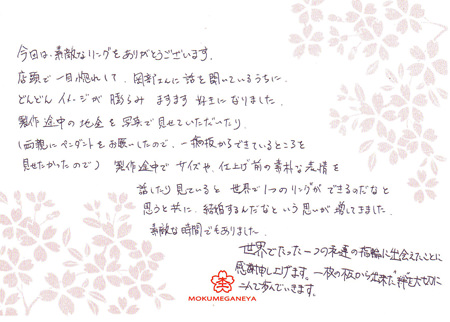 今日は、素敵なリングをありがとうございます。
店頭で一目惚れして、岡部さんに話を聞いているうちに、
どんどんイメージが膨らみ ますます好きになりました。
製作途中の地金を写真で見せていただいたり、
(両親にペンダントをお願いしたので、一枚板からできているところを
見せたかったので) 製作途中でサイズや、仕上げ前の素朴な表情を
話したり見ていると 世界で1つのリングができるのだなと
思うと共に、結婚するんだなという思いが増してきました。
素敵な時間でもありました。
世界でたった一つの 運の指輪に出会えたことに
感謝申し上げます。一枚の板から出来た"絆"を大切に
二人で歩んでいきます。
MOKUMEGANEYA